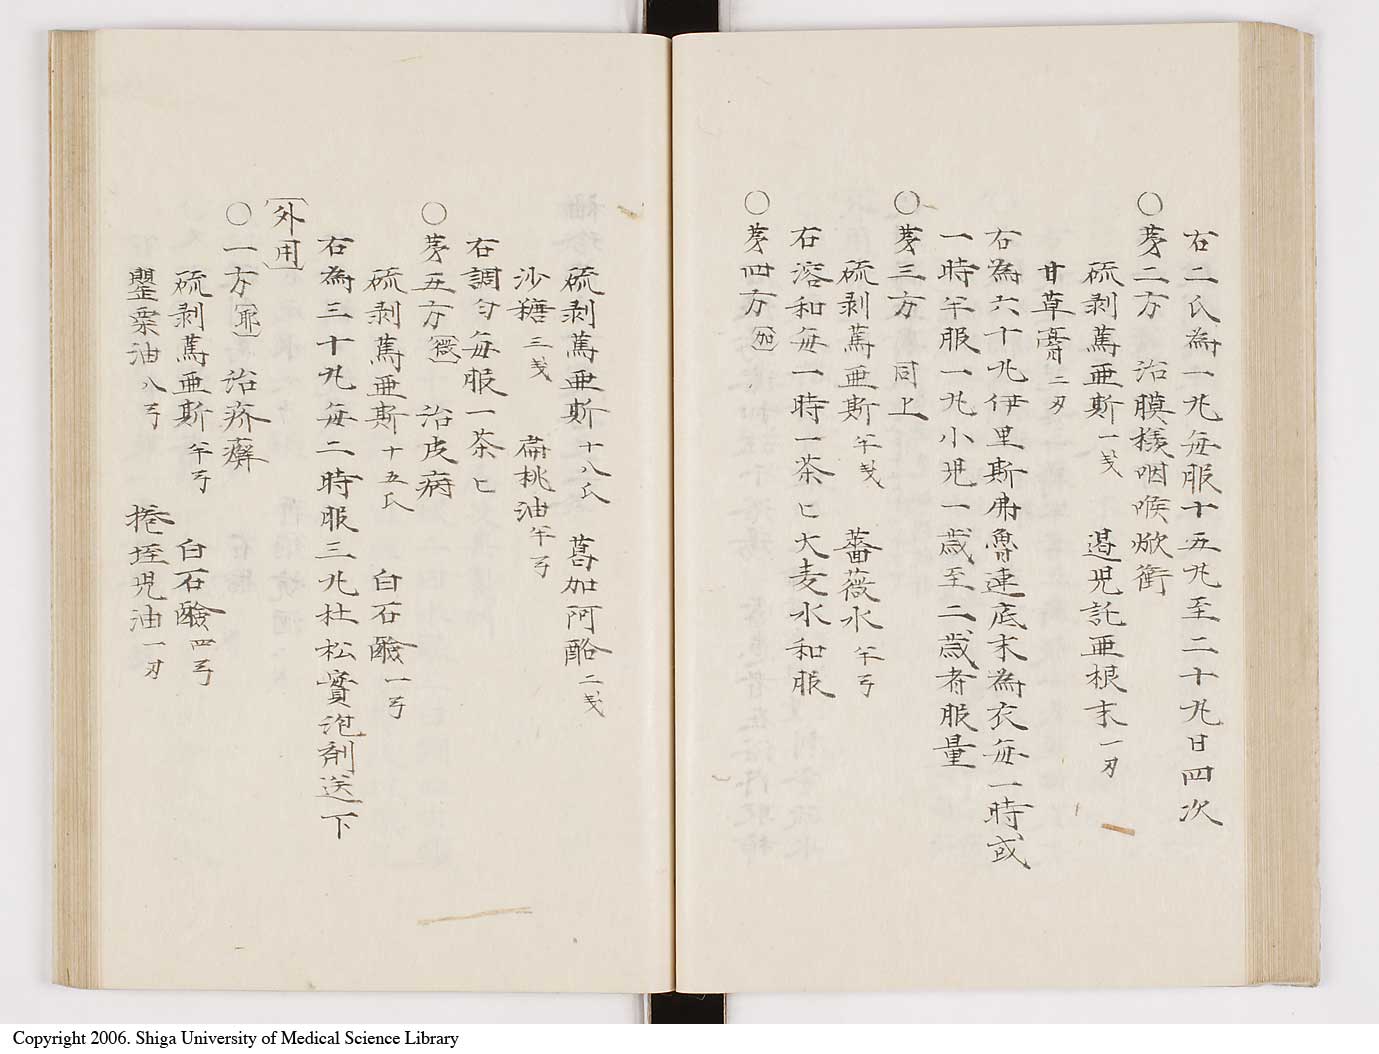 右二氏為一丸每服十五丸至二十丸日四次
〇第二方 治膜様咽喉焮衝
硫剥篤亜斯 一戔 遏児託亜根末 一刃
甘草膏 二刃
右為六十丸伊里斯弗魯連底末為衣每一時或
一時半服一丸小児一歳至二歳者服量
〇第三方 同上
硫剥篤亜斯 半戔 薔薇水 半弓
右溶和每一時一茶匕大麦水和服
〇第四方
硫剥篤亜斯 十八氏 葛加阿酪 二戔
沙糖 三戔 扁桃油 半弓
右調匀每服一茶匕
〇第五方 治皮病
硫剥篤亜斯 十五氏 白石鹸 一弓
右為三十丸每二時服三丸杜松實泡剤送下
外用
〇一方 治疥癬
硫剥篤亜斯 半弓 白石鹸 四弓
罌粟油 八弓 捲垤児油 一刃
Copyright 2006. Shiga University of Medical Science Library